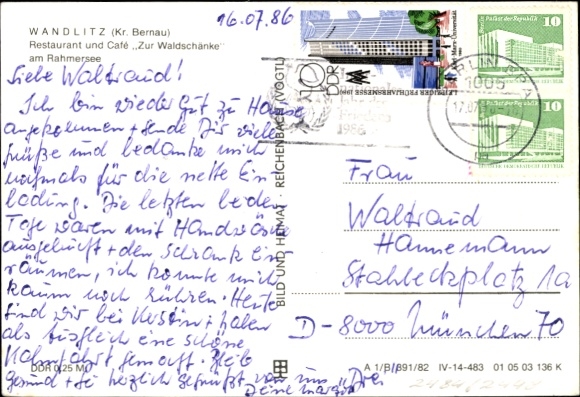 16.07.86
WANDLITZ (Kr. Bernau)
Restaurant und Café „Zur Waldschänke"
am Rahmersee
Liebe Waltraud!
Ich bin wieder gut zu Hause
angekommen + sende Dir viele
Grüße und bedanke mich
nochmals für die nette Ein
ladung. Die letzten beiden
Tage waren mit Handwäsche
ausgefüllt + den Schrank ein
räumen, ich konnte mich
kaum noch rühren. Heute
sind wir bei Kerstin + haben
als Ausgleich eine schöne
Kahnfahrt gemacht. Bleib
gesund + sei herzlich gegrüßt von uns "Drei"
Deine Margot
DDR 0,25 M
BILD UND HEIMAT REICHENBACH (VOGTL)
10
DDR
LEIPZIGER FRÜHJAHRSMESSE 1986
Palast der Republik
10
Palast der Republik
10
1085
17.07.
1986
Frau
Waltraud
Hannemann
Stahleckplatz 1a
D-8000 München 70
A 1/B 891/82 IV-14-483 01 05 03 136 K